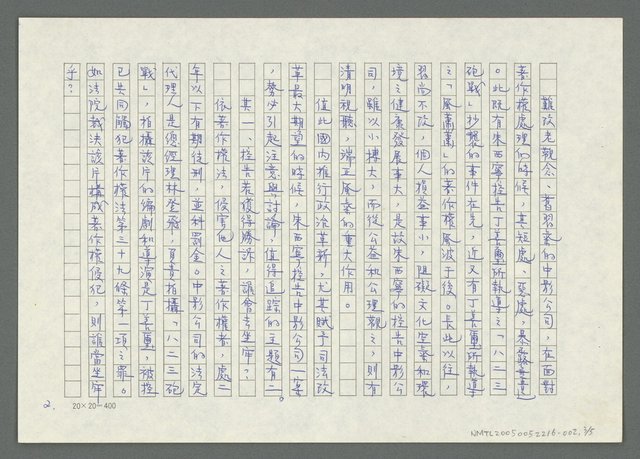 難改老觀念、舊習氣的中影公司，在面對
著作權處理的時候，其短處、惡處，暴露無遺
。此既有朱西甯控告丁善璽所執導之「八二三
砲戰」抄襲的事件在先，近又有丁善璽所執導
之「風蕭蕭」的著作權風波于後。長此以往，
習尚不改，個人損益事小，阻礙文化空氣和環
境之健康發展事大，是故朱西甯的控告中影公
司，雖以小博大，而從公益和公理觀之，則有
清明視聽，端正風氣的重大作用。
值此國內推行政治革新，尤其賦予司法改
革最大期望的時候，朱西甯控告中影公司一案
，勢必引起注意與討論，值得追踪的主題有二。
其一、控告若獲得勝訴，誰會去坐牢？
依著作權法，侵害他人之著作權者，處二
年以下有期徒刑，並科罰金。中影公司的法定
代理人是總經理林登飛，負責拍攝「八二三砲
戰」，拍攝該片的編劇和導演是丁善璽，被控
已共同觸犯著作權法第三十九條第一項之罪。
如法院裁決該片構成著作權侵犯，則誰當坐牢
乎？
2.
20×20=400
NMTL20050052216-002, 2/5